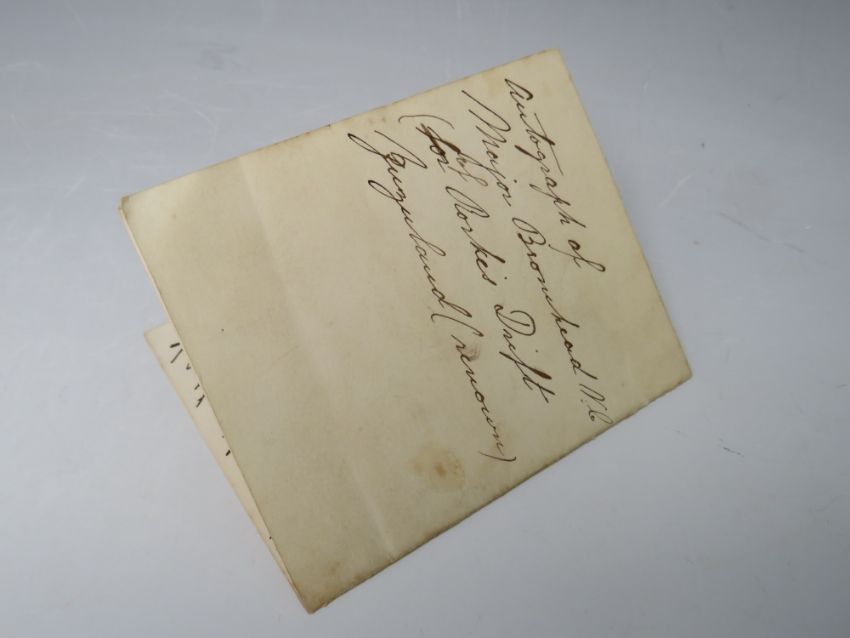 Autograph of
Major Bromhead V.C
(of Rorke's Drift
Zuzuland (renown)